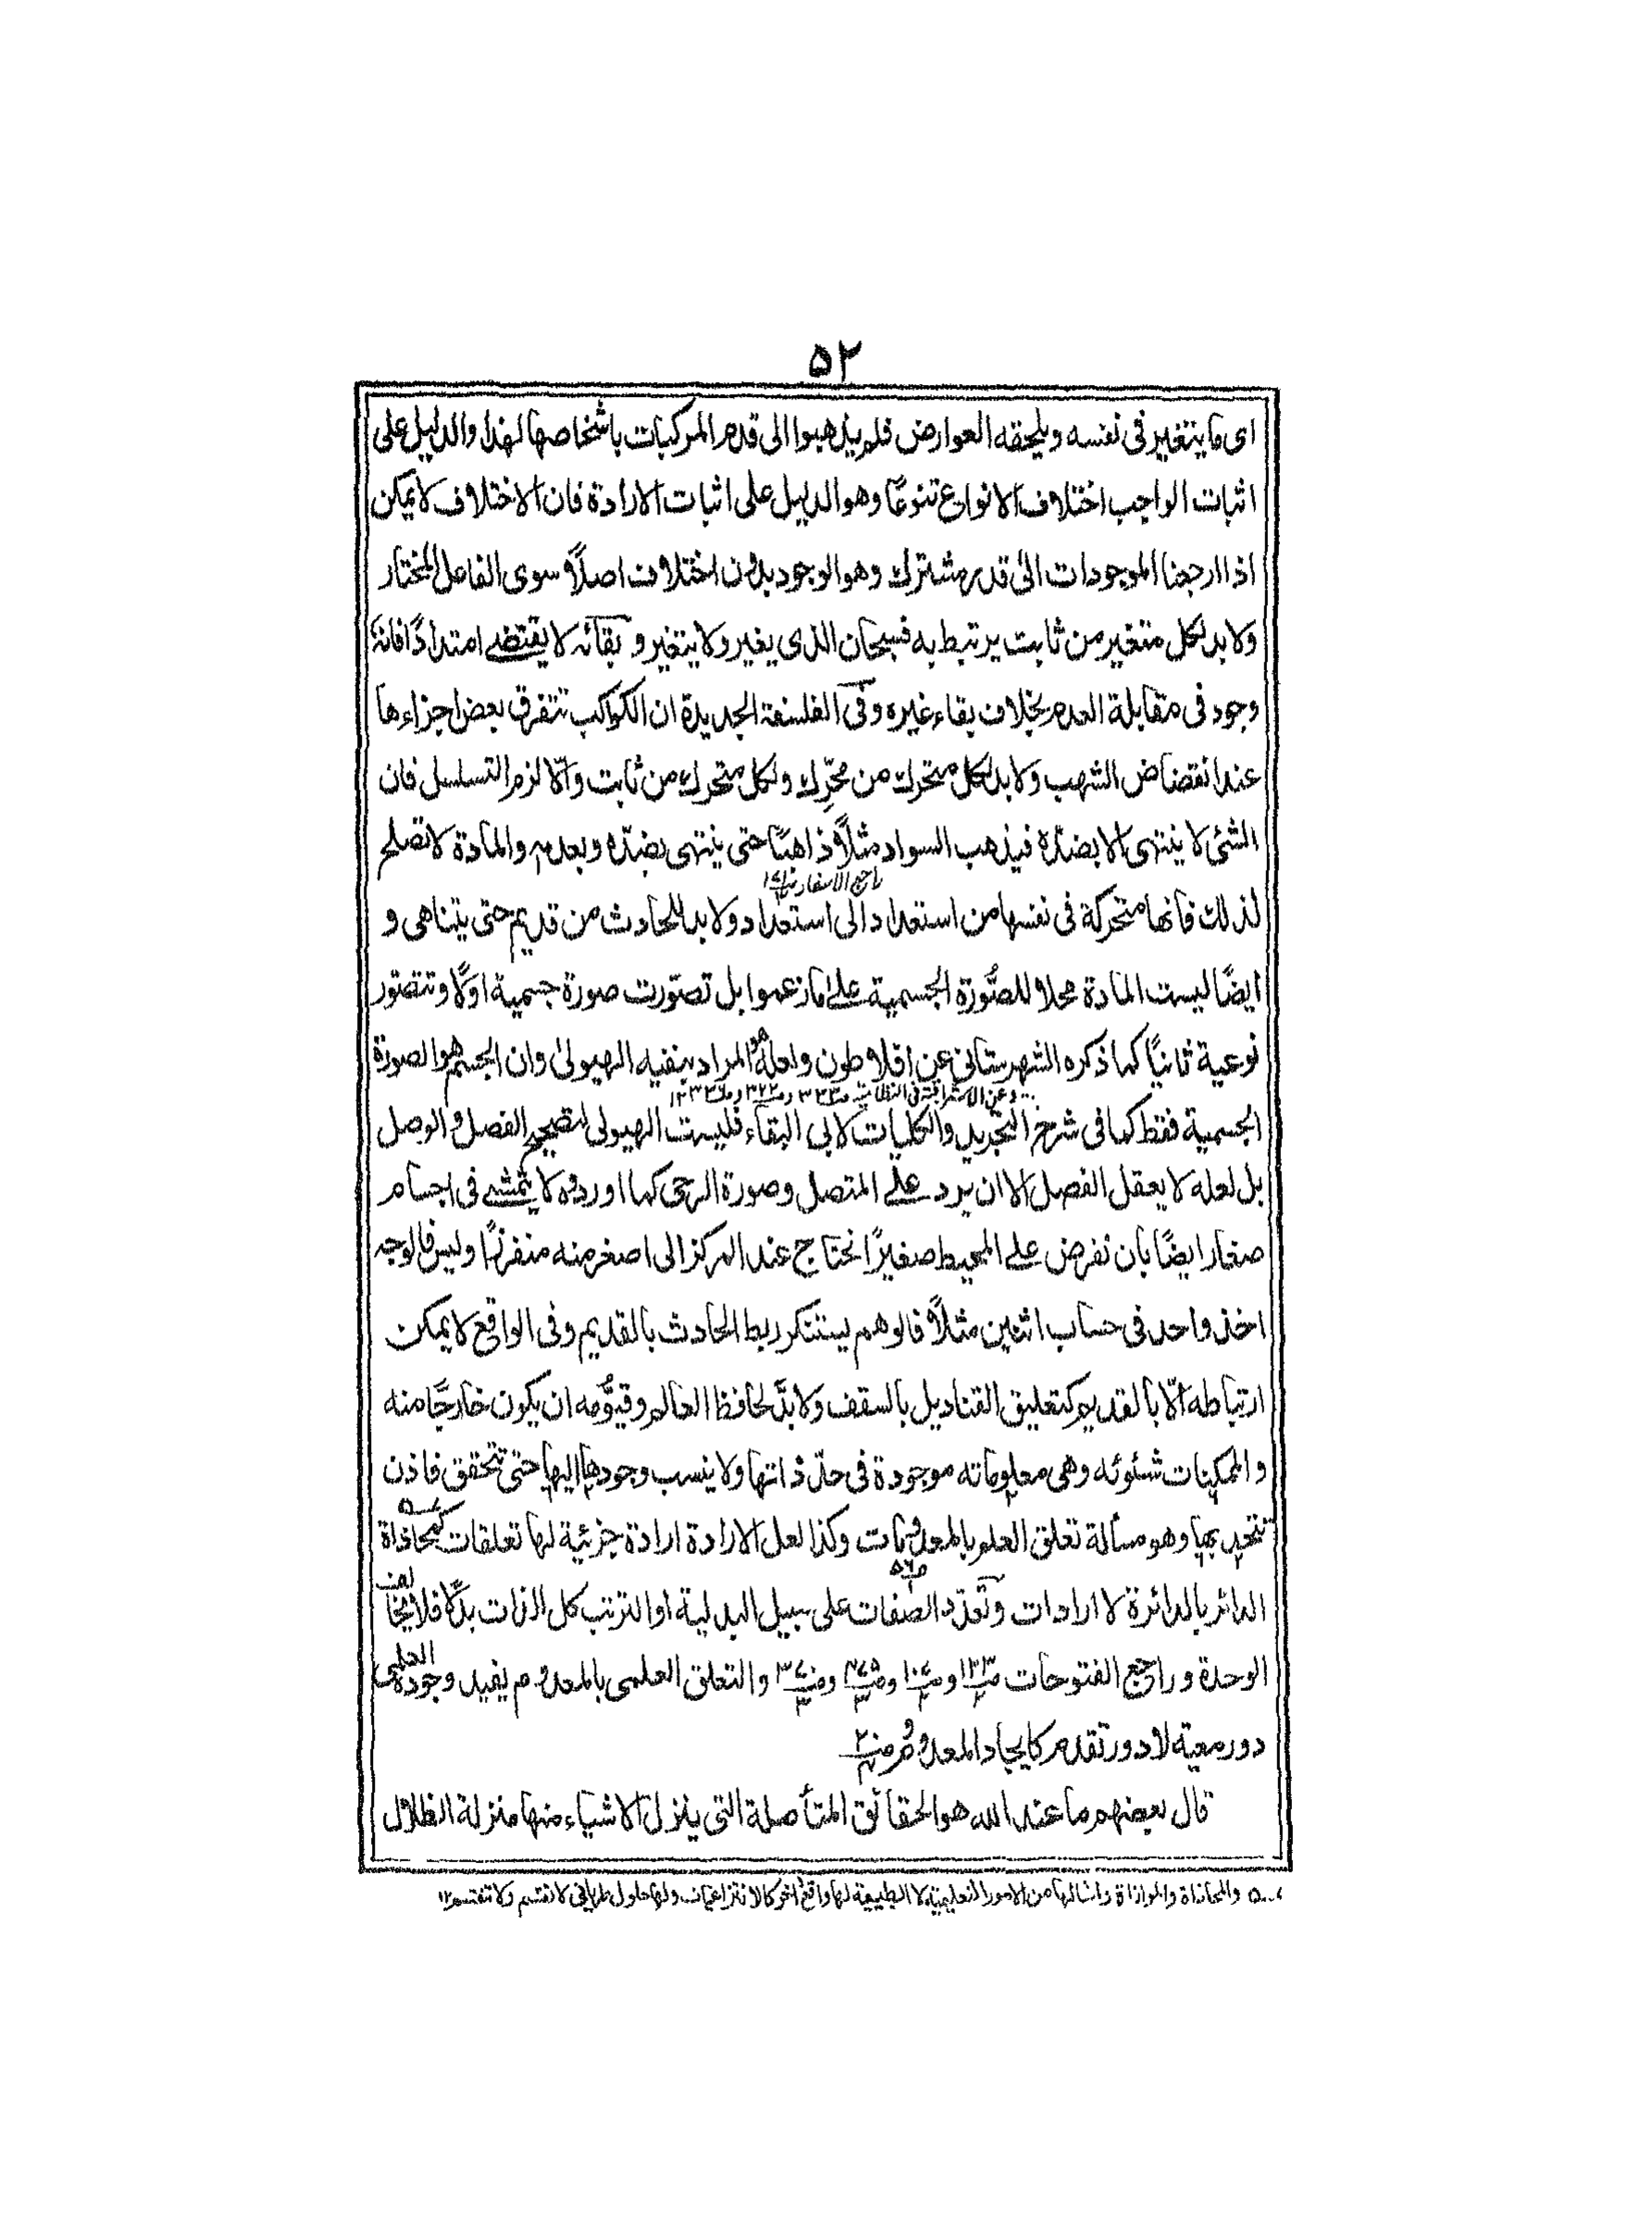 ۵۲
اى ما يتغير فى نفسه ويلحقه العوارض فلم يذهبوا الى قدم المركبات باشخاصها لهذا والدليل على
اثبات الواجب اختلاف الانواع تنوعًا وهو الدليل على اثبات الارادة فان الاختلاف لا يمكن
اذا ارجعنا الموجودات الى قدر مشترك وهو الوجود بدون اختلاف اصلاً سوى الفاعل المختار
ولا بد لكل متغير من ثابت يرتبط به فسبحان الذى يغير ولا يتغير و بقائه لا يقتضى امتدادًا فانه
وجود فى مقابلة العدم بخلاف بقاء غيره وفى الفلسفة الجديدة ان الكواكب تتفرق بعض اجزاءها
عند انقضاض الشهب ولا بد لكل متحرك من محرِّك ولكل متحرك من ثابت والّا لزم التسلسل فان
الشئ لا ينتهى الا بضدّه فيذهب السواد مثلاً ذاهبًا حتى ينتهى بضدّه وبعدمه والمادة لا تصلح
راجع الاسفار
لذلك فانها متحركة فى نفسها من استعداد الى استعداد ولا بد للحادث من قديم حتى يتناهى و
ايضًا ليست المادة محلا للصُّورة الجسمية على ما زعموا بل تصوّرت صورة جسمية اوّلًا وتتصور
نوعية ثانيًا كما ذكره الشهرستانى عن افلاطون ولعله هو المراد بنفيه الهيولىٰ وان الجسم هو الصورة
وعن الاشراقية فى
الجسمية فقط كما فى شرح التجريد والكليات لابى البقاء فليست الهيولى لتصحيح الفصل والوصل
بل لعله لا يعقل الفصل الا ان يرد على المتصل وصورة الرحى كما اوردوه لا يتمشى فى اجسام
صغار ايضًا بأن نفرض على المحيط صغيرًا نحتاج عند المركز الى اصغر منه منفرزًا وليس فالوجه
اخذ واحد فى حساب اثنين مثلاً فالوهم يستنكر ربط الحادث بالقديم وفى الواقع لا يمكن
ارتباطه الّا بالقديم كتعليق القناديل بالسقف ولا بدَّ لحافظ العالم وقيوُّمه ان يكون خارجًا منه
والممكنات شئونه وهى معلوماته موجودة فى حدّ ذاتها ولا ينسب وجودها اليها حتى تتحقق فاذن
تتحد بها وهو مسألة تعلق العلم بالمعدومات وكذا لعل الارادة ارادة جزئية لها تعلقات كمحاذاة
الدائر بالدائرة لا ارادات وتعدّد الصفات على سبيل البدلية او الترتب كل الذات بدلًا فلا يخالف
الوحدة وراجع الفتوحات والتعلق العلمى بالمعدوم يفيد وجوده العلمى
دور معية لا دور تقدم كايجاد المعدوم
قال بعضهم ما عند الله هو الحقائق المتأصلة التى ينزل الاشياء منها منزلة الظلال
والمحاذاة والموازاة وامثالها من الامور التعليمية لا الطبيعية لها واقع آخر كالانتزاعيات ولها حلول طريانى لا تنقسم ولا تنقسم ۱۲